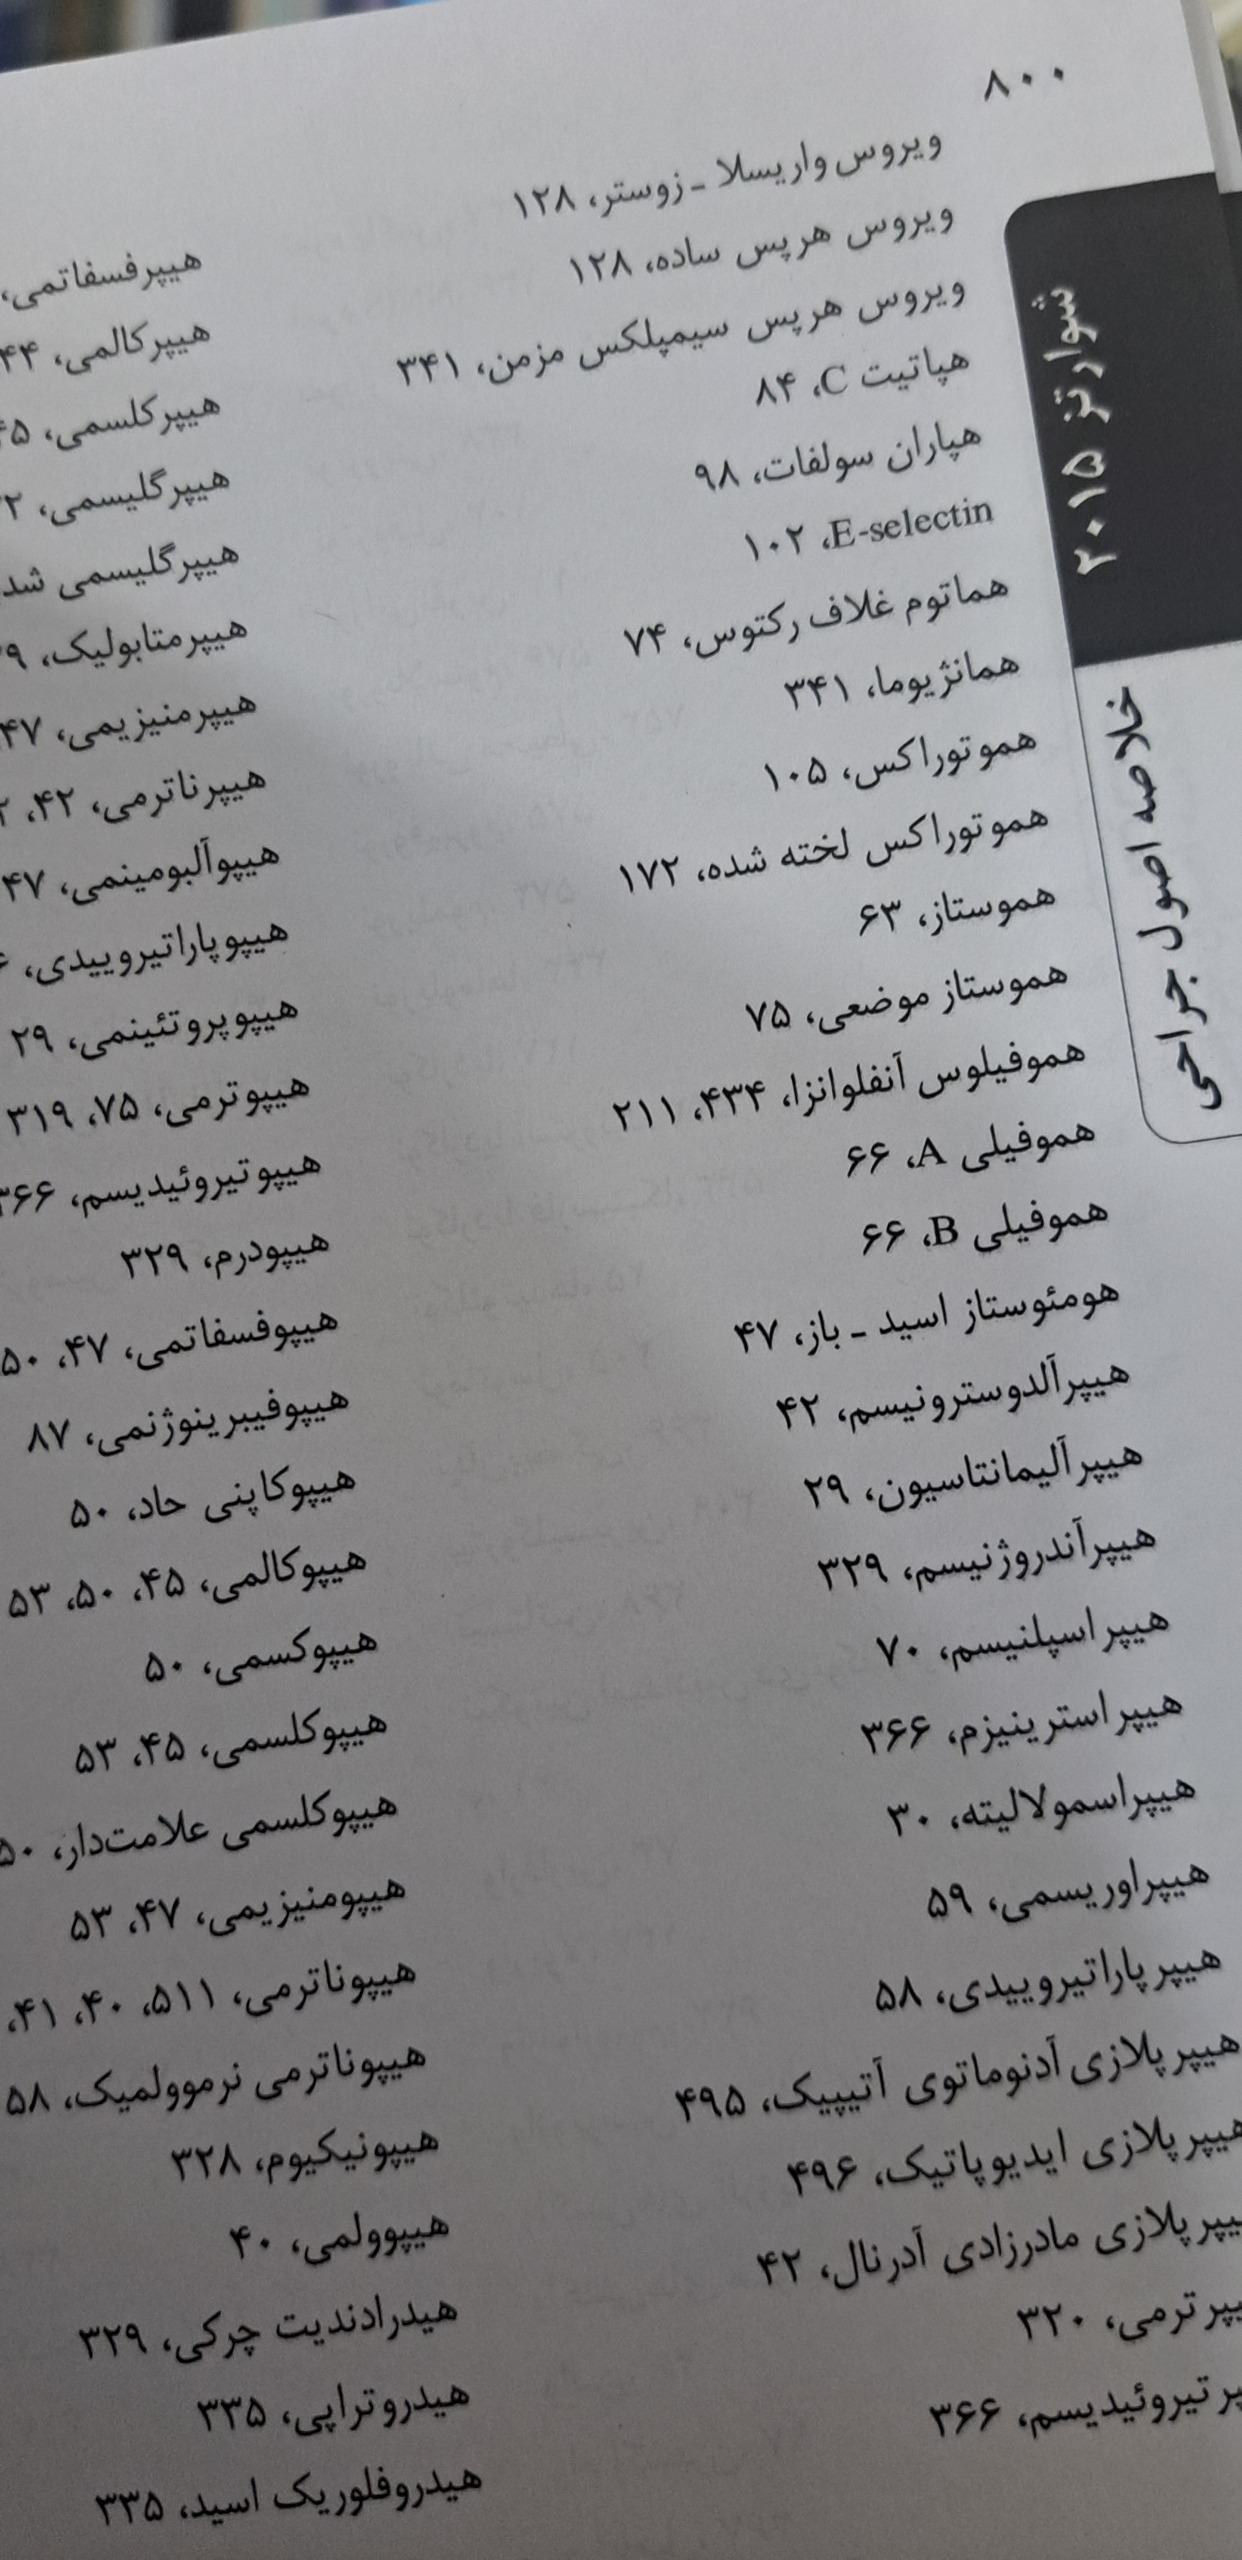 ۸۰۰
شوارتز ۲۰۱۵
خلاصه اصول جراحی
ویروس واریسلا ـ زوستر، ۱۲۸
ویروس هرپس ساده، ۱۲۸
ویروس هرپس سیمپلکس مزمن، ۳۴۱
هپاتیت C، ۸۴
هپاران سولفات، ۹۸
E-selectin، ۱۰۲
هماتوم غلاف رکتوس، ۷۴
همانژیوما، ۳۴۱
هموتوراکس، ۱۰۵
هموتوراکس لخته شده، ۱۷۲
هموستاز، ۶۳
هموستاز موضعی، ۷۵
هموفیلوس آنفلوانزا، ۴۳۴، ۲۱۱
هموفیلی A، ۶۶
هموفیلی B، ۶۶
هومئوستاز اسید ـ باز، ۴۷
هیپرآلدوسترونیسم، ۴۲
هیپرآلیمانتاسیون، ۲۹
هیپرآندروژنیسم، ۳۲۹
هیپراسپلنیسم، ۷۰
هیپراسترینیزم، ۳۶۶
هیپراسمولالیته، ۳۰
هیپراوریسمی، ۵۹
هیپرپاراتیروییدی، ۵۸
هیپرپلازی آدنوماتوی آتیپیک، ۴۹۵
هیپرپلازی ایدیوپاتیک، ۴۹۶
یپرپلازی مادرزادی آدرنال، ۴۲
یپرترمی، ۳۲۰
پرتیروئیدیسم، ۳۶۶
هیپرفسفاتمی،
هیپرکالمی، ۴۴
هیپرکلسمی، ۴۵
هیپرگلیسمی،
هیپرگلیسمی شد
هیپرمتابولیک،
هیپرمنیزیمی، ۴۷
هیپرناترمی، ۴۲،
هیپوآلبومینمی، ۴۷
هیپوپاراتیروییدی،
هیپوپروتئینمی، ۲۹
هیپوترمی، ۷۵، ۳۱۹
هیپوتیروئیدیسم، ۳۶۶
هیپودرم، ۳۲۹
هیپوفسفاتمی، ۴۷، ۵۰
هیپوفیبرینوژنمی، ۸۷
هیپوکاپنی حاد، ۵۰
هیپوکالمی، ۴۵، ۵۰، ۵۳
هیپوکسمی، ۵۰
هیپوکلسمی، ۴۵، ۵۳
هیپوکلسمی علامت‌دار، ۵۰
هیپومنیزیمی، ۴۷، ۵۳
هیپوناترمی، ۵۱۱، ۴۰، ۴۱،
هیپوناترمی نرموولمیک، ۵۸
هیپونیکیوم، ۳۲۸
هیپوولمی، ۴۰
هیدرادندیت چرکی، ۳۲۹
هیدروتراپی، ۳۳۵
هیدروفلوریک اسید، ۳۳۵